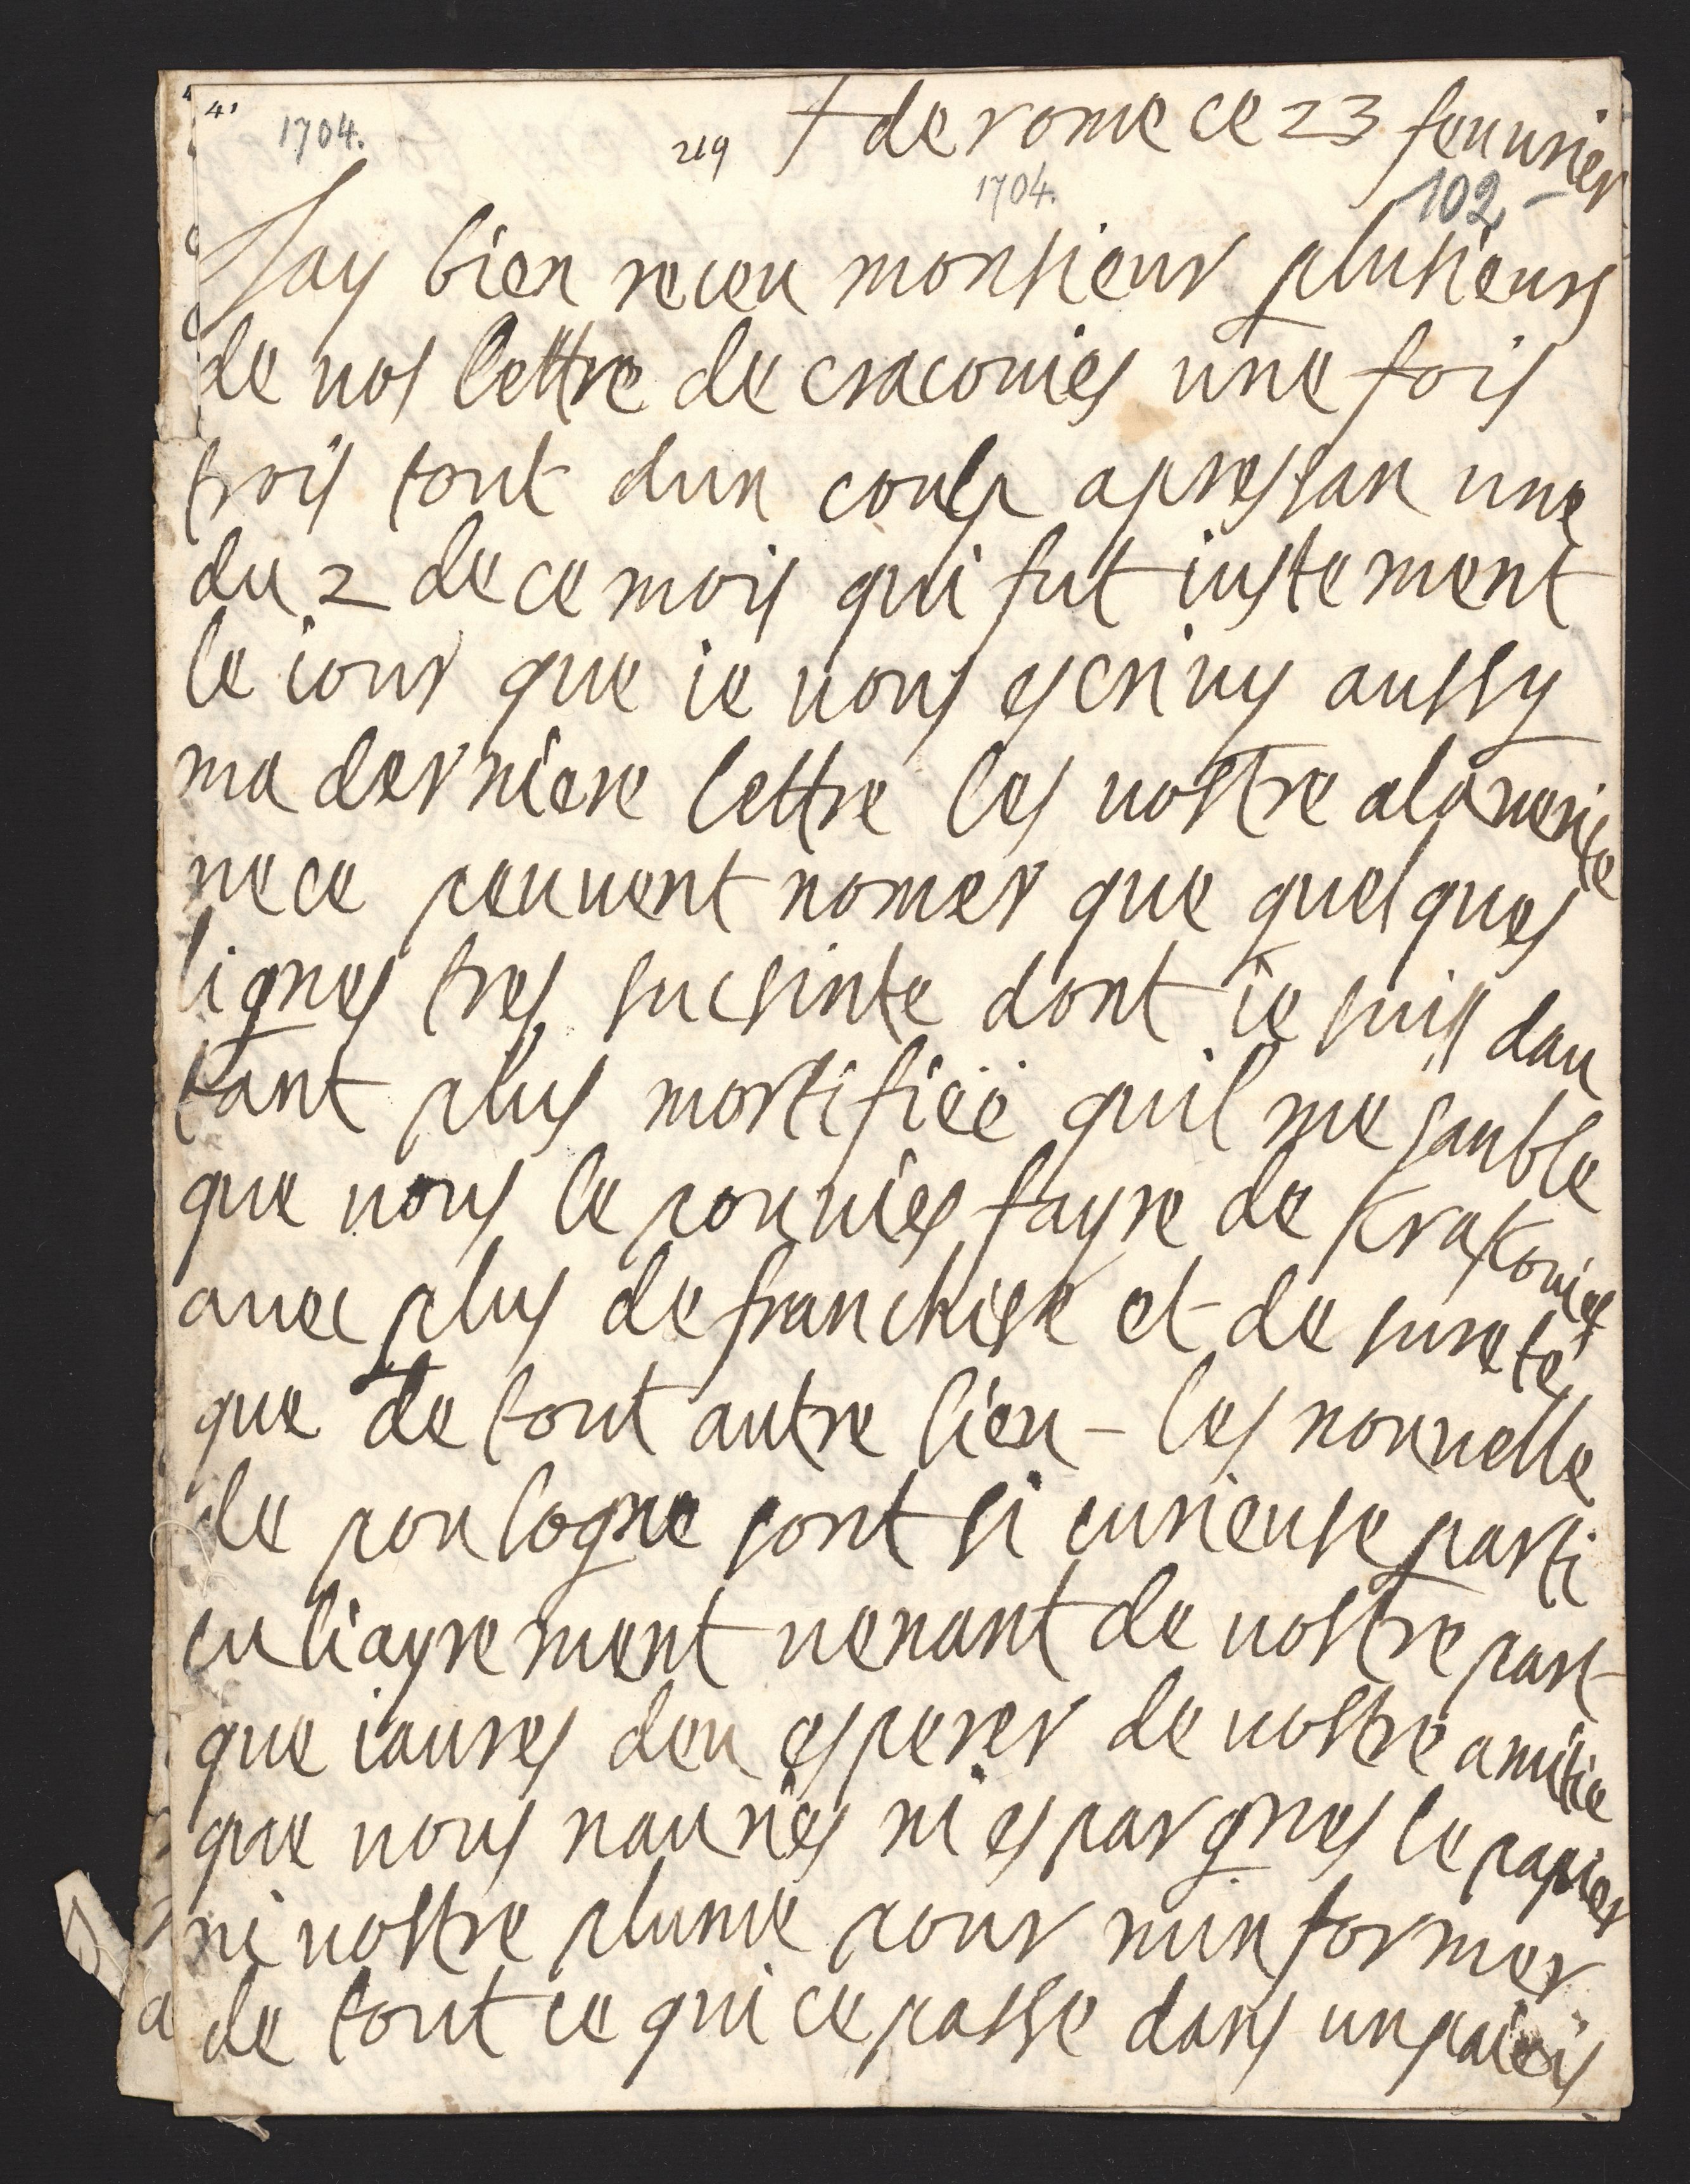 41
1704.
219 + de rome ce 23 feuurier
1704. 102 -
Jay bien receu monsieur plusieurs
de uos lettre de cracouies une fois
trois tout dun coulp apressan une
du 2 de ce mois qui fut iustement
le iour que ie uous escriuy aussy
ma derniere lettre les uostre ala uerite
nece peuuent nomer que quelques
lignes tres sucsinte dont ie suis dau
tant plus mortifieë quil me sanble
que uous le pouuies fayre de Krakouies
auec plus de franchise et de sureté
que de tout autre lieu - les nouuelle
de poulogne sont si curieuse parti
culiayrement uenant de uostre part
que iaures deu esperer de uostre amitie
que uous nauries ni espargnes le papier
ni uostre plume pour minformer
de tout ce qui ce passe dans un païis
a